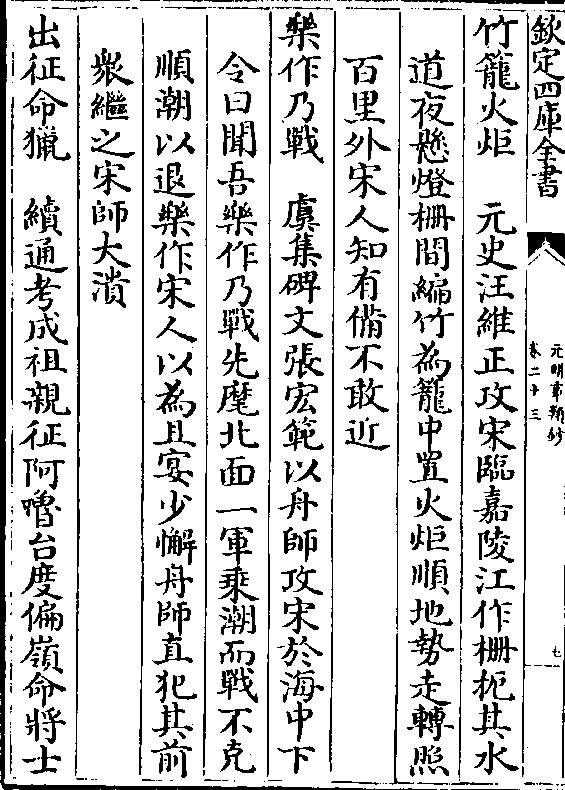 欽定四庫全書
元明事類鈔
卷二十三
七
竹籠火炬　元史汪維正攻宋臨嘉陵江作柵扼其水
道夜懸燈柵間編竹為籠中置火炬順地勢走轉照
百里外宋人知有備不敢近
樂作乃戰　虞集碑文張宏範以舟師攻宋於海中下
令曰聞吾樂作乃戰先麾北面一軍乘潮而戰不克
順潮以退樂作宋人以為且宴少懈舟師直犯其前
衆繼之宋師大潰
出征命獵　續通考成祖親征阿嚕台度偏嶺命將士